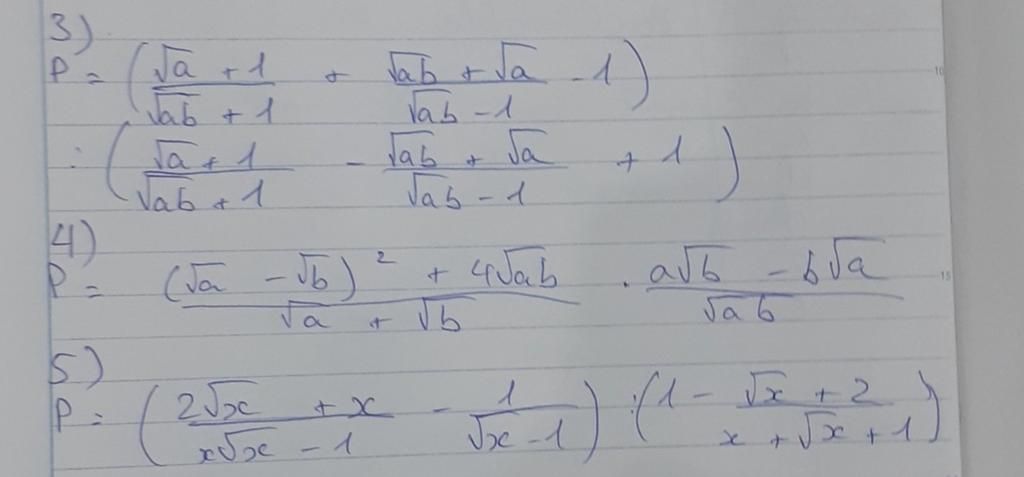 3)
P = ( (√a + 1)/(√ab + 1) + (√ab + √a)/(√ab - 1) - 1 )
: ( (√a + 1)/(√ab + 1) - (√ab + √a)/(√ab - 1) + 1 )
4)
P = ((√a - √b)² + 4√ab)/(√a + √b) . (a√b - b√a)/(√ab)
5)
P = ( (2√x + x)/(x√x - 1) - 1/(√x - 1) ) : ( 1 - (√x + 2)/(x + √x + 1) )